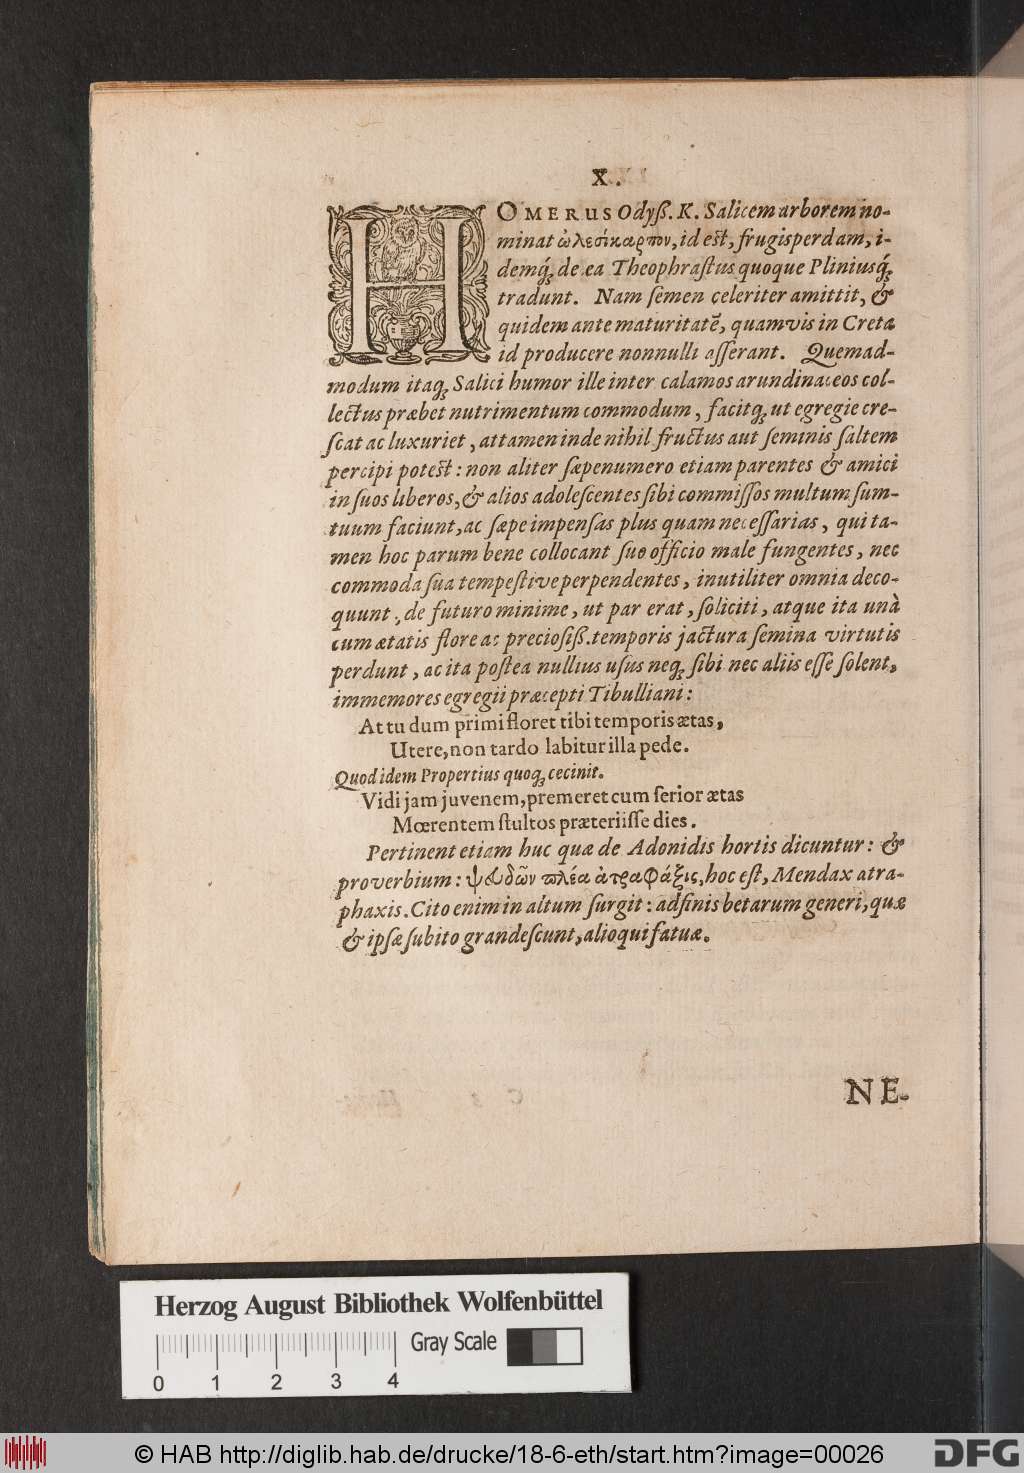 X.
HOMERUS Odyß. K. Salicem arborem no-
minat ὠλεσίκαρπον, id est, frugisperdam, i-
demq́; de ea Theophraſtus quoque Pliniusq́;
tradunt. Nam ſemen celeriter amittit, &
quidem ante maturitatẽ, quamvis in Creta
id producere nonnulli aſſerant. Quemad-
modum itaq; Salici humor ille inter calamos arundinaceos col-
lectus præbet nutrimentum commodum, facitq; ut egregie cre-
ſcat ac luxuriet, attamen inde nihil fructus aut ſeminis ſaltem
percipi poteſt: non aliter ſæpenumero etiam parentes & amici
in ſuos liberos, & alios adoleſcentes ſibi commiſſos multum ſum-
tuum faciunt, ac ſæpe impenſas plus quam neceſſarias, qui ta-
men hoc parum bene collocant ſuo officio male fungentes, nec
commoda ſua tempeſtive perpendentes, inutiliter omnia deco-
quunt, de futuro minime, ut par erat, ſoliciti, atque ita unà
cum ætatis flore ac precioſiß. temporis jactura ſemina virtutis
perdunt, ac ita poſtea nullius uſus neq; ſibi nec aliis eſſe ſolent,
immemores egregii præcepti Tibulliani:
At tu dum primi floret tibi temporis ætas,
Utere, non tardo labitur illa pede.
Quod idem Propertius quoq; cecinit.
Vidi jam juvenem, premeret cum ſerior ætas
Mœrentem ſtultos præteriiſſe dies.
Pertinent etiam huc quæ de Adonidis hortis dicuntur: &
proverbium: ψευδῶν πλέα ἀτραφάξις, hoc eſt, Mendax atra-
phaxis. Cito enim in altum ſurgit: adfinis betarum generi, quæ
& ipſæ ſubito grandeſcunt, alioqui fatuæ.
NE-
Herzog August Bibliothek Wolfenbüttel
Gray Scale
0 1 2 3 4
© HAB http://diglib.hab.de/drucke/18-6-eth/start.htm?image=00026
DFG